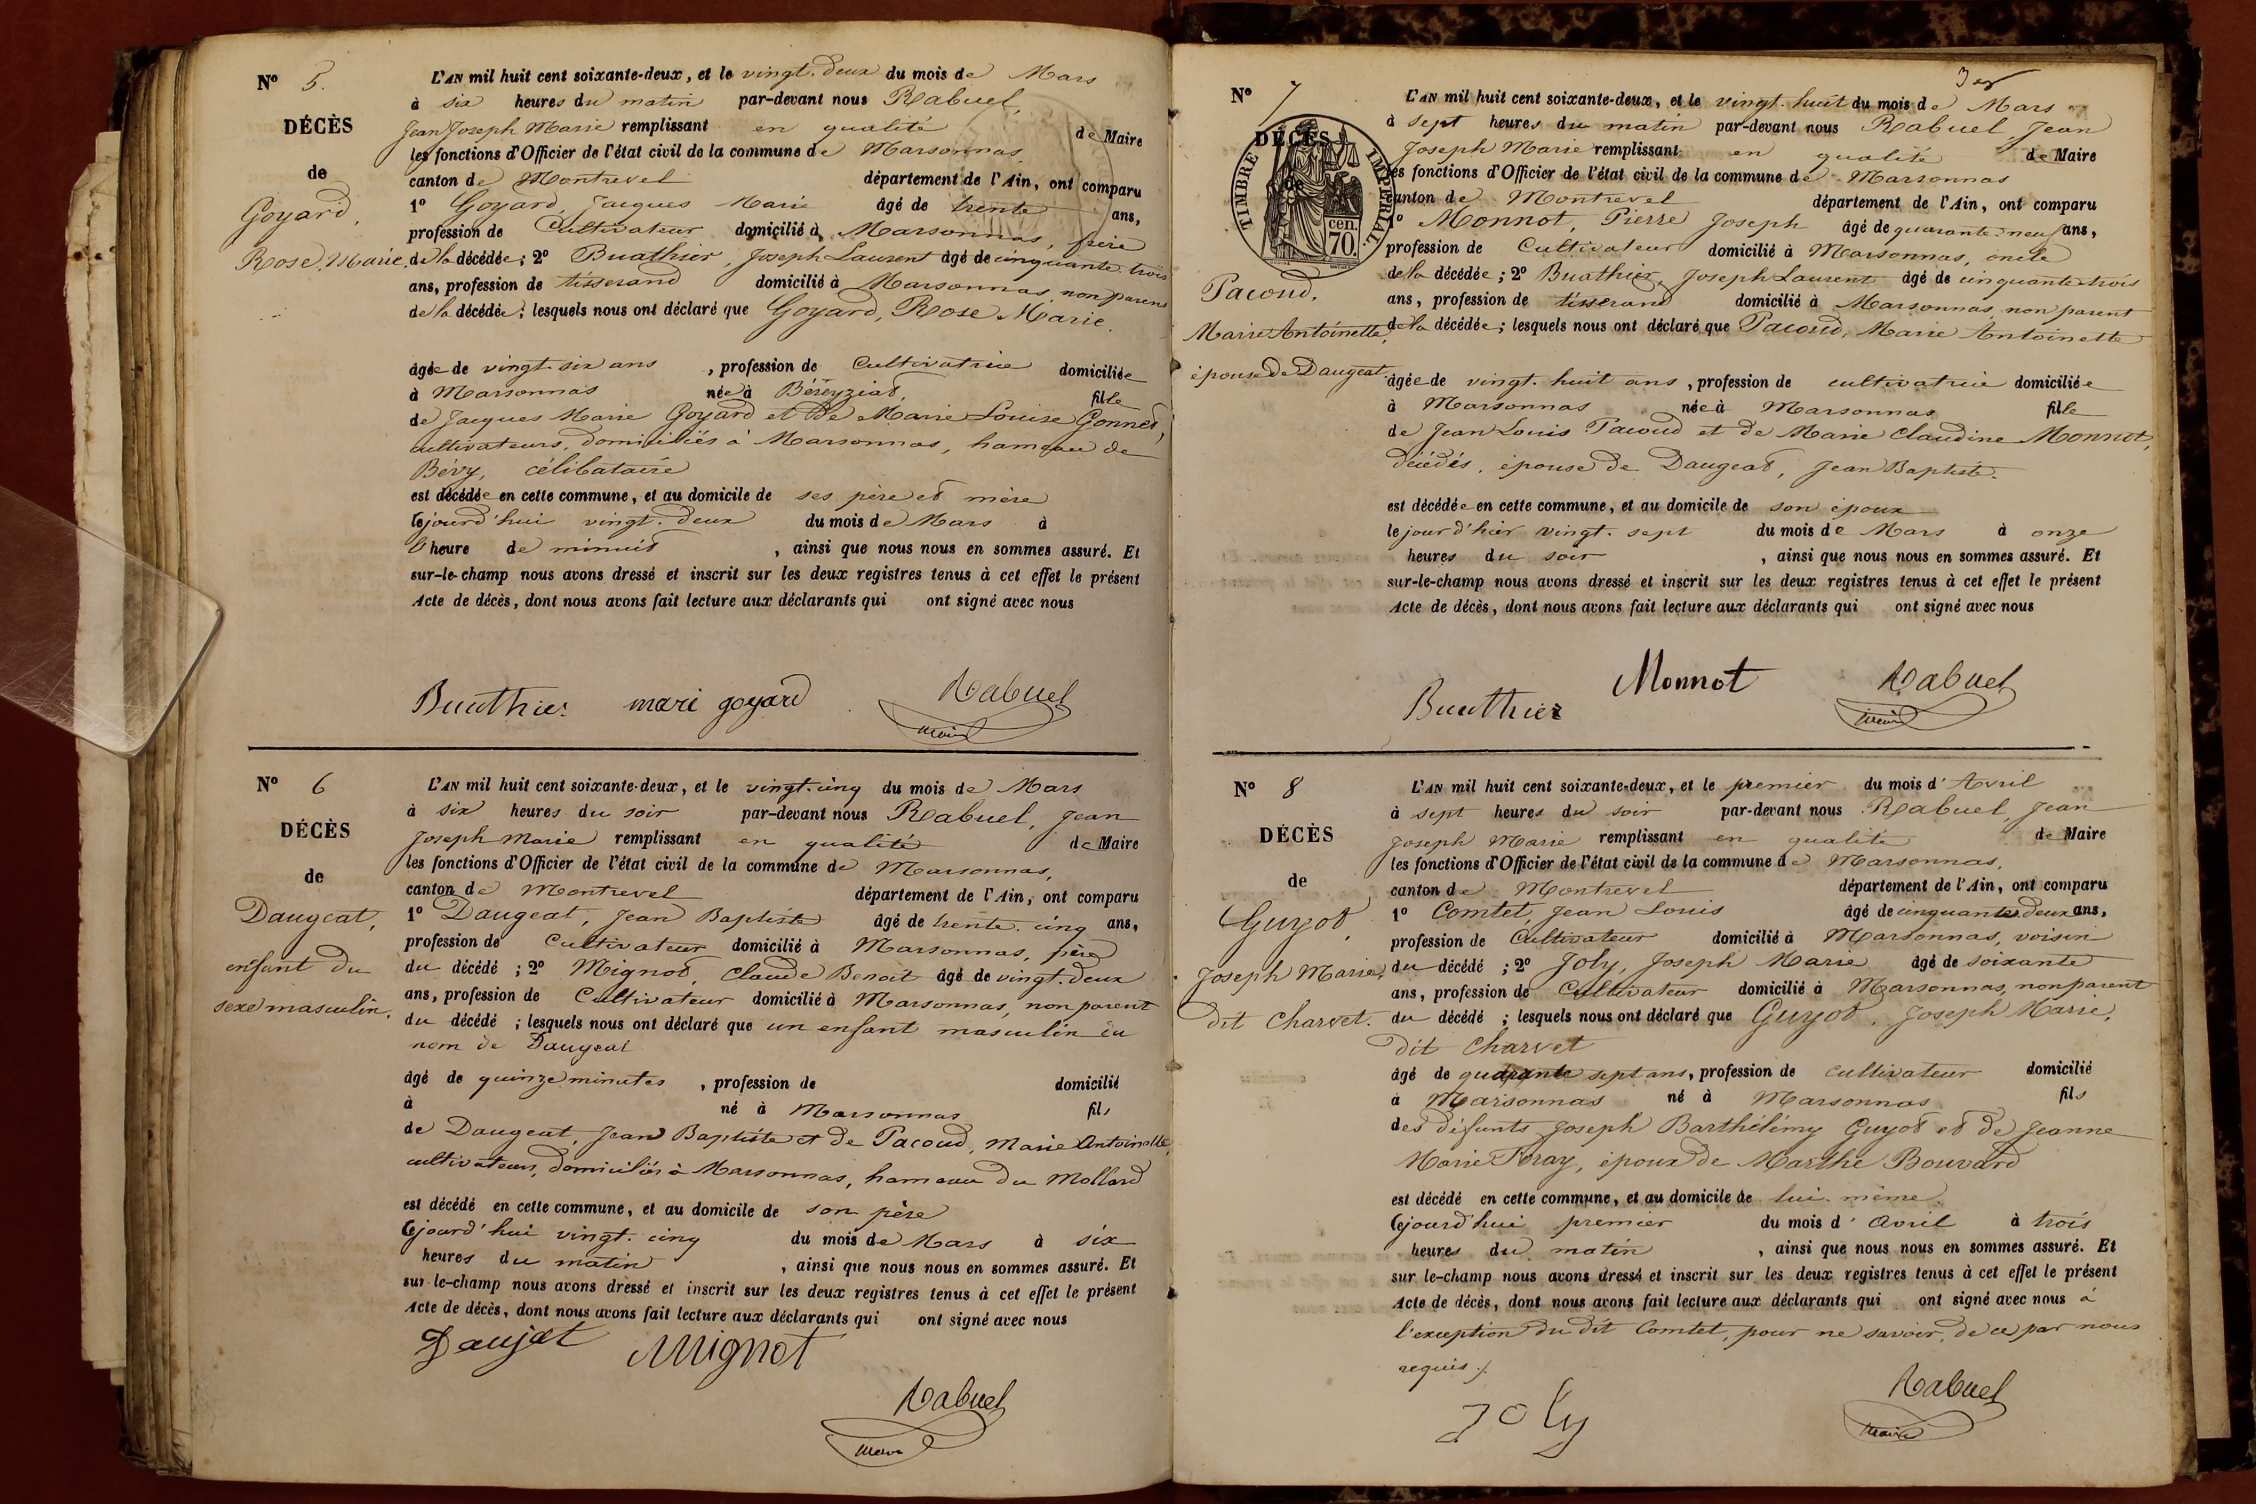 N° 5.
DÉCÈS
de
Goyard,
Rose Marie.
L'AN mil huit cent soixante-deux, et le vingt-deux du mois de Mars
à six heures du matin par-devant nous Rabuel,
Jean Joseph Marie remplissant en qualité de Maire
les fonctions d'Officier de l'état civil de la commune de Marsonnas,
canton de Montrevel département de l'Ain, ont comparu
1° Goyard, Jacques Marie âgé de trente ans,
profession de Cultivateur domicilié à Marsonnas, frère
de la décédée; 2° Buathier, Joseph Laurent âgé de cinquante-trois
ans, profession de tisserand domicilié à Marsonnas, non parent
de la décédée; lesquels nous ont déclaré que Goyard, Rose Marie.
âgée de vingt-six ans, profession de Cultivatrice domiciliée
à Marsonnas née à Béréyziat, fille
de Jacques Marie Goyard et de Marie Louise Gonnet,
cultivateurs, domiciliés à Marsonnas, hameau de
Bévy, célibataire
est décédée en cette commune, et au domicile de ses père et mère
cejourd'hui vingt-deux du mois de Mars à
l'heure de minuit, ainsi que nous nous en sommes assuré. Et
sur-le-champ nous avons dressé et inscrit sur les deux registres tenus à cet effet le présent
Acte de décès, dont nous avons fait lecture aux déclarants qui ont signé avec nous
Buathier mari goyard Rabuel
Maire
N° 6
DÉCÈS
de
Daugeat,
enfant du
sexe masculin.
L'AN mil huit cent soixante-deux, et le vingt-cinq du mois de Mars
à six heures du soir par-devant nous Rabuel, Jean
Joseph Marie remplissant en qualité de Maire
les fonctions d'Officier de l'état civil de la commune de Marsonnas,
canton de Montrevel département de l'Ain, ont comparu
1° Daugeat, Jean Baptiste âgé de trente-cinq ans,
profession de Cultivateur domicilié à Marsonnas, père
du décédé; 2° Mignot, Claude Benoit âgé de vingt-deux
ans, profession de Cultivateur domicilié à Marsonnas, non parent
du décédé; lesquels nous ont déclaré que un enfant masculin du
nom de Daugeat
âgé de quinze minutes, profession de domicilié
à né à Marsonnas fils
de Daugeat, Jean Baptiste et de Pacoud, Marie Antoinette,
cultivateurs, domiciliés à Marsonnas, hameau du Mollard
est décédé en cette commune, et au domicile de son père
cejourd'hui vingt-cinq du mois de Mars à six
heures du matin, ainsi que nous nous en sommes assuré. Et
sur-le-champ nous avons dressé et inscrit sur les deux registres tenus à cet effet le présent
Acte de décès, dont nous avons fait lecture aux déclarants qui ont signé avec nous
Daujat Mignot
Rabuel
Maire
N° 7
DÉCÈS
de
TIMBRE IMPÉRIAL.
cen.
70.
Pacoud,
Marie Antoinette,
épouse de Daugeat.
L'AN mil huit cent soixante-deux, et le vingt-huit du mois de Mars
à sept heures du matin par-devant nous Rabuel, Jean
Joseph Marie remplissant en qualité de Maire
les fonctions d'Officier de l'état civil de la commune de Marsonnas
canton de Montrevel département de l'Ain, ont comparu
1° Monnot, Pierre Joseph âgé de quarante-neuf ans,
profession de Cultivateur domicilié à Marsonnas, oncle
de la décédée; 2° Buathier, Joseph Laurent âgé de cinquante-trois
ans, profession de tisserand domicilié à Marsonnas, non parent
de la décédée; lesquels nous ont déclaré que Pacoud, Marie Antoinette
âgée de vingt-huit ans, profession de cultivatrice domiciliée
à Marsonnas née à Marsonnas fille
de Jean Louis Pacoud et de Marie Claudine Monnot,
décédés, épouse de Daugeat, Jean Baptiste.
est décédée en cette commune, et au domicile de son époux
le jour d'hier vingt-sept du mois de Mars à onze
heures du soir, ainsi que nous nous en sommes assuré. Et
sur-le-champ nous avons dressé et inscrit sur les deux registres tenus à cet effet le présent
Acte de décès, dont nous avons fait lecture aux déclarants qui ont signé avec nous
Buathier Monnot Rabuel
Maire
N° 8
DÉCÈS
de
Guyot,
Joseph Marie,
dit Charvet.
L'AN mil huit cent soixante-deux, et le premier du mois d'Avril
à sept heures du soir par-devant nous Rabuel, Jean
Joseph Marie remplissant en qualité de Maire
les fonctions d'Officier de l'état civil de la commune de Marsonnas,
canton de Montrevel département de l'Ain, ont comparu
1° Comtet, Jean Louis âgé de cinquante-deux ans,
profession de Cultivateur domicilié à Marsonnas, voisin
du décédé; 2° Joly, Joseph Marie âgé de soixante
ans, profession de Cultivateur domicilié à Marsonnas, non parent
du décédé; lesquels nous ont déclaré que Guyot, Joseph Marie,
dit Charvet
âgé de quarante sept ans, profession de cultivateur domicilié
à Marsonnas né à Marsonnas fils
des défunts Joseph Barthélémy Guyot et de Jeanne
Marie Foray, époux de Marthe Bouvard
est décédé en cette commune, et au domicile de lui-même.
cejourd'hui premier du mois d'avril à trois
heures du matin, ainsi que nous nous en sommes assuré. Et
sur le-champ nous avons dressé et inscrit sur les deux registres tenus à cet effet le présent
Acte de décès, dont nous avons fait lecture aux déclarants qui ont signé avec nous à
l'exception du dit Comtet, pour ne savoir, de ce par nous
requis./.
Joly Rabuel
Maire